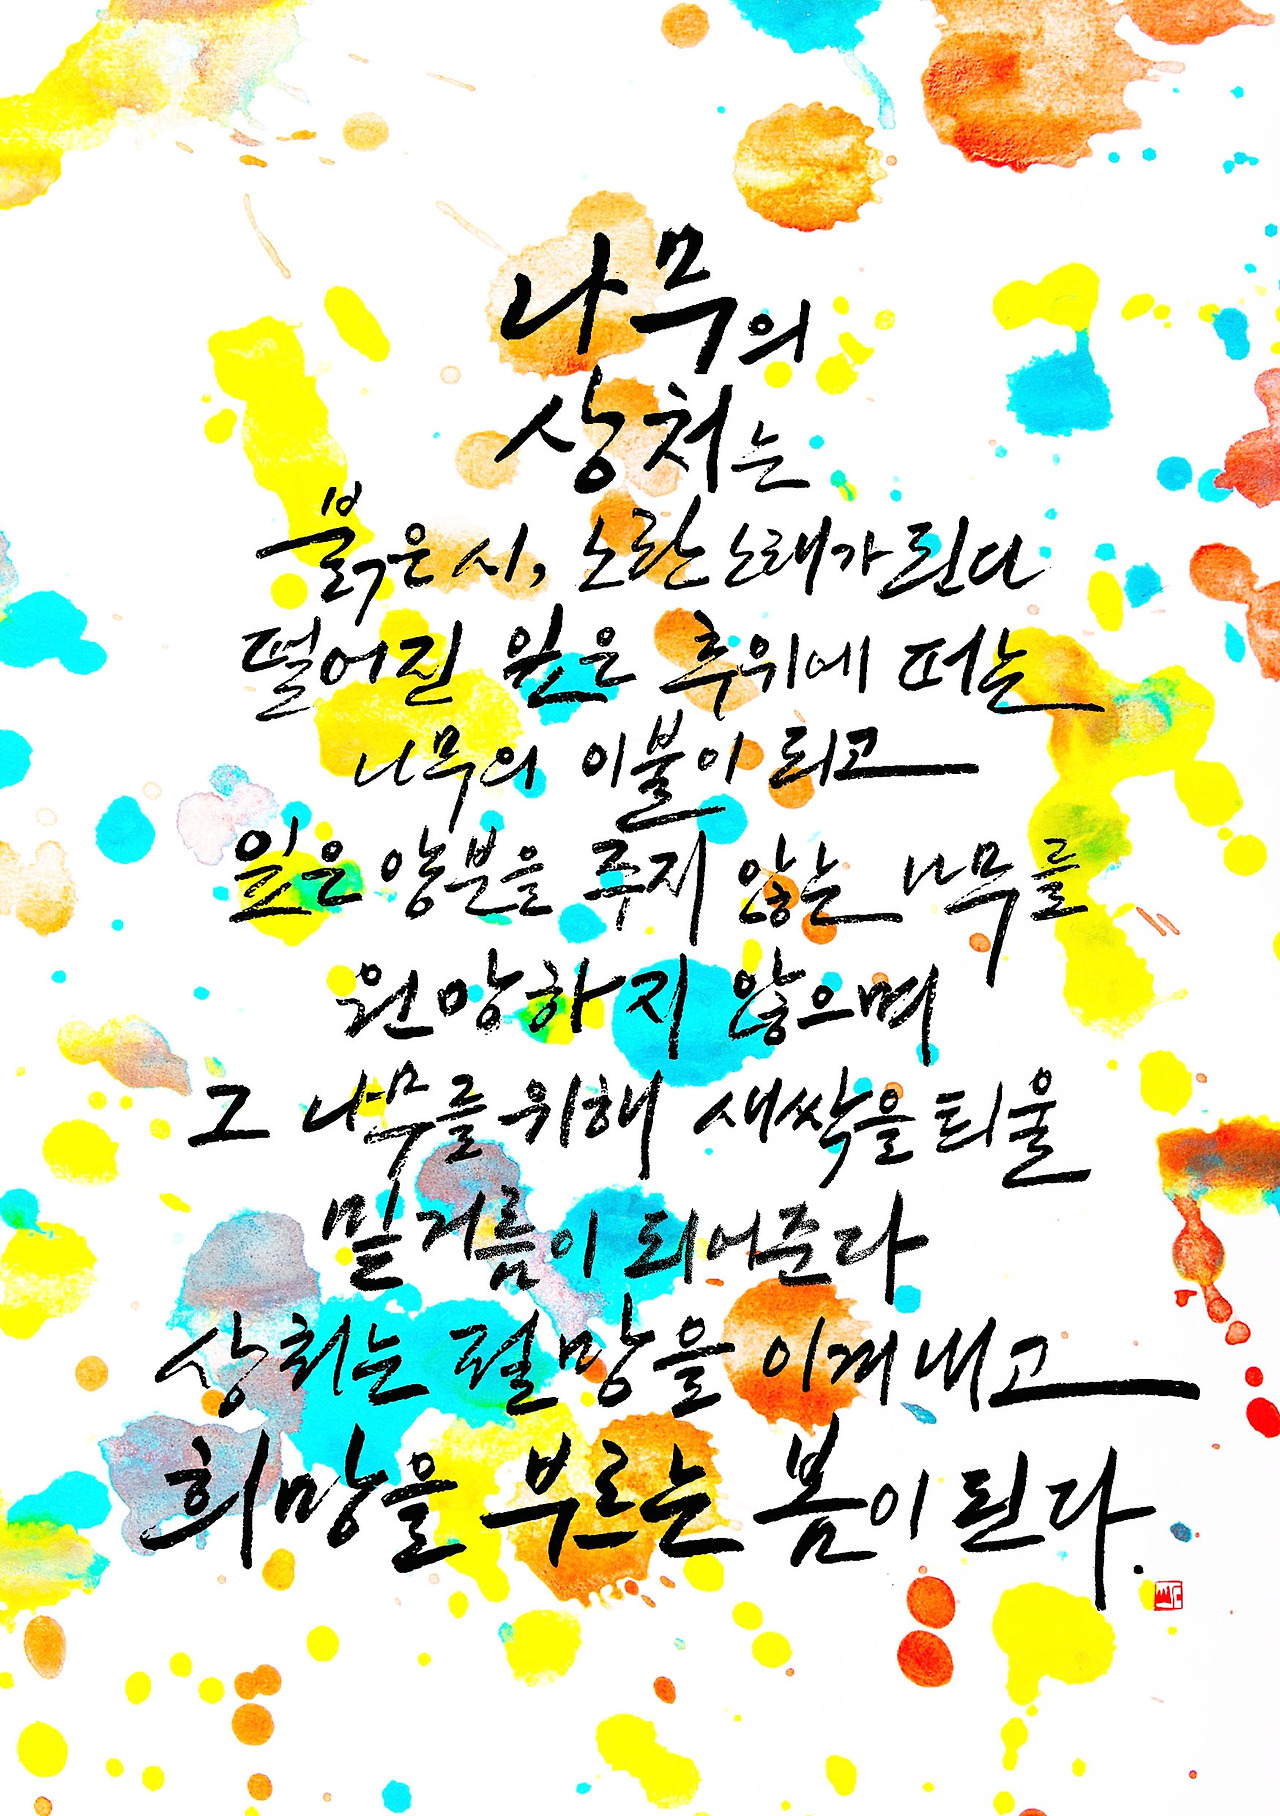 나무의
상처는
붉은 시, 노란 노래가 된다
떨어진 잎은 추위에 떠는
나무의 이불이 되고
잎은 양분을 주지 않는 나무를
원망하지 않으며
그 나무를 위해 새싹을 틔울
밑거름이 되어준다
상처는 절망을 이겨내고
희망을 부르는 봄이 된다.